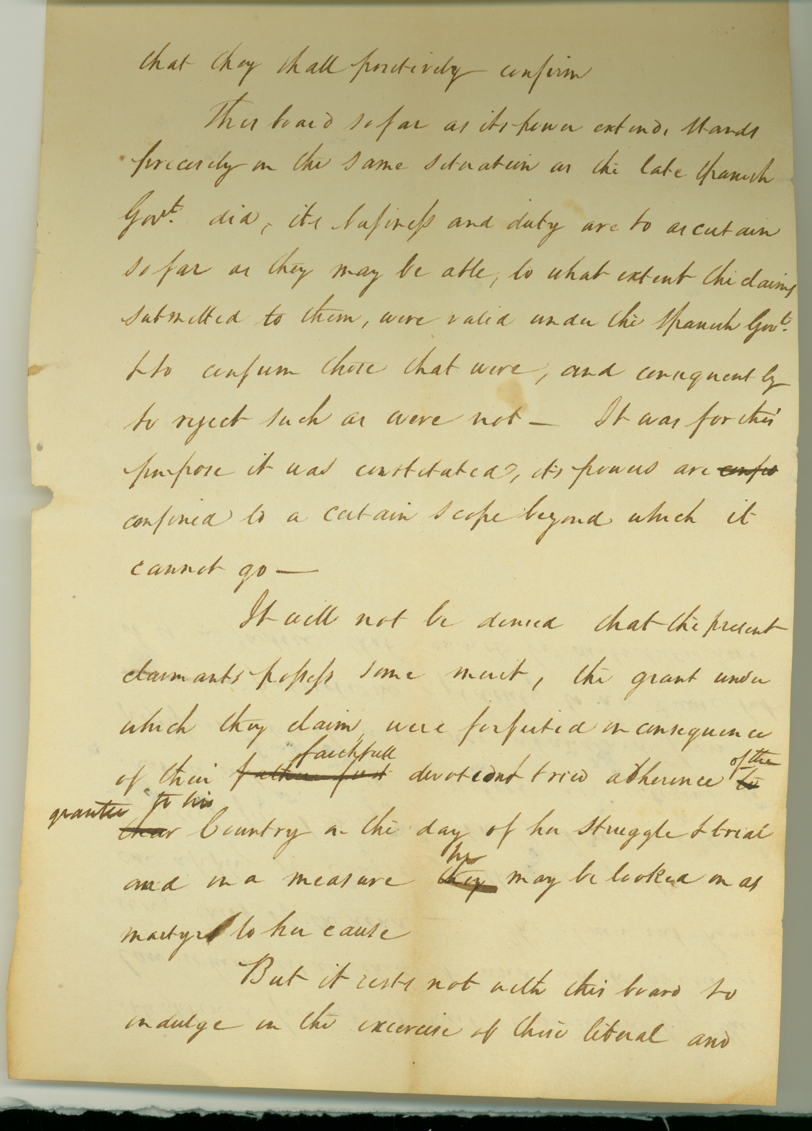 that they shall positively confirm
This board so far as its power extends stands
precisely in the same situation as the late Spanish
Govt. did, its business and duty are to ascertain
so far as they may be able, to what extent the claims
submitted to them, were valid under the Spanish Govt.
& to confirm those that were, and consequently
to reject such as were not — It was for this
purpose it was constituted, its powers are
confined to a certain scope beyond which it
cannot go —
It will not be denied that the present
claimants possess some merit, the grant under
which they claim were forfeited in consequence
faithfull
of their devoted & tried adherence of the
grantee to his
Country in the day of her struggle & trial
he
and in a measure they may be looked on as
martyr to her cause
But it rests not with this board to
indulge in the exercise of these liberal and